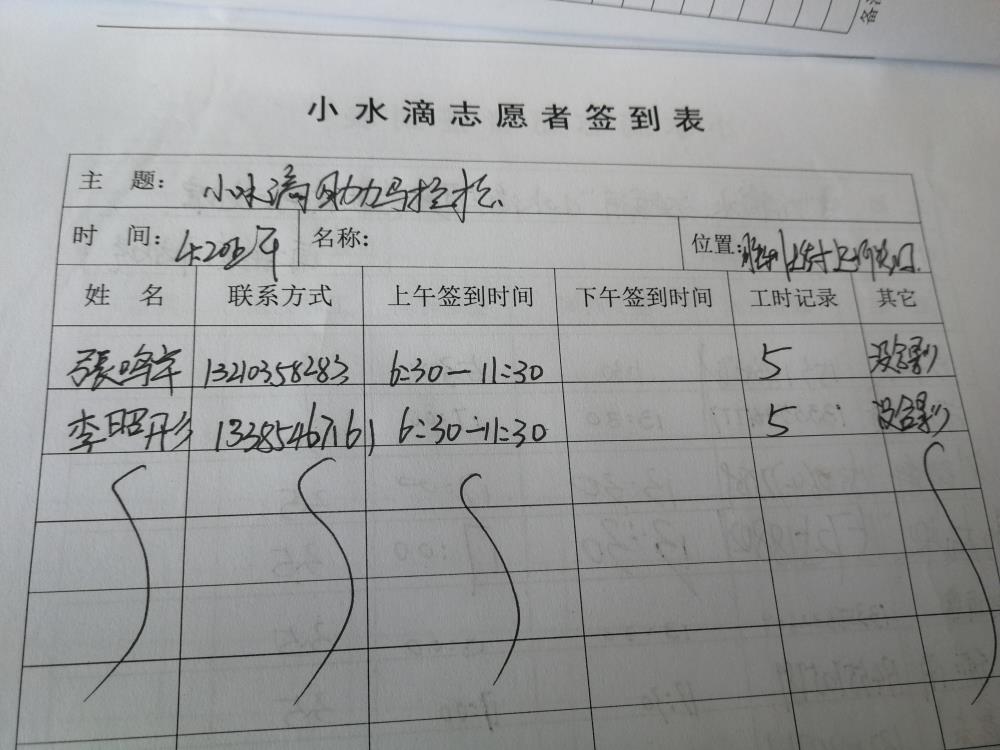 备注
小水滴志愿者签到表
主 题: 小水滴助力马拉松
时 间: 4.20上午 名称: 位置:
姓 名 联系方式 上午签到时间 下午签到时间 工时记录 其它
張鸣宇 13210358283 6:30—11:30 5
李昭彤 13385467161 6:30—11:30 5